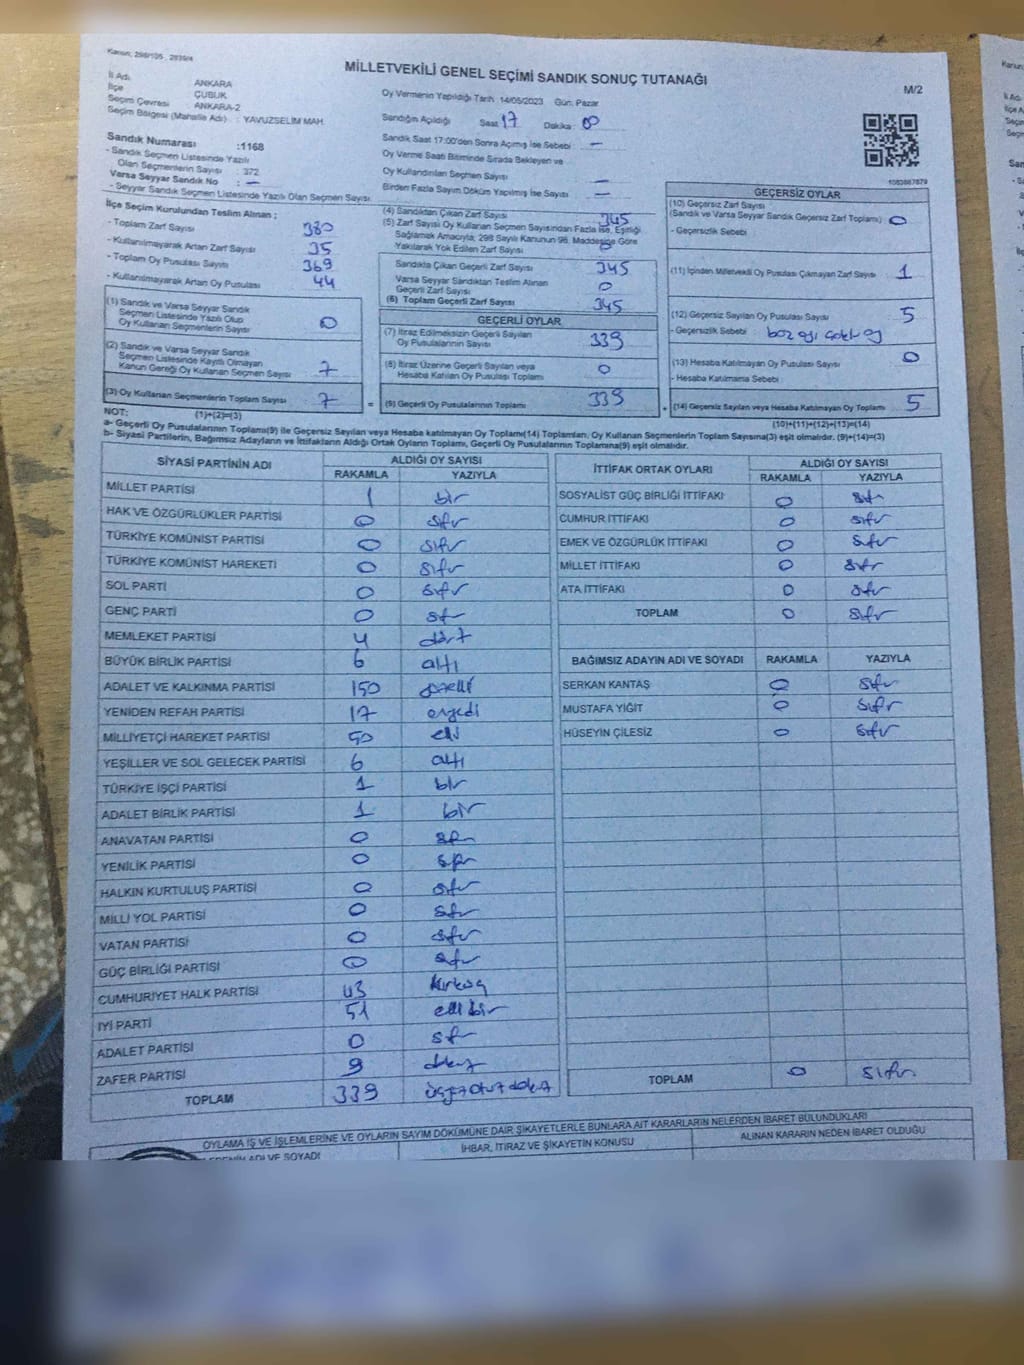 Kanun; 298/105 , 2839/4
MİLLETVEKİLİ GENEL SEÇİMİ SANDIK SONUÇ TUTANAĞI
M/2
İl Adı : ANKARA
İlçe : ÇUBUK
Seçim Çevresi : ANKARA-2
Seçim Bölgesi (Mahalle Adı) : YAVUZSELİM MAH.
Oy Vermenin Yapıldığı Tarih 14/05/2023 Gün: Pazar
Sandığın Açıldığı Saat 17 Dakika : 00
Sandık Saat 17:00'den Sonra Açılmış İse Sebebi : —
Oy Verme Saati Bitiminde Sırada Bekleyen ve
Oy Kullandırılan Seçmen Sayısı —
Birden Fazla Sayım Döküm Yapılmış İse Sayısı : —
Sandık Numarası :1168
- Sandık Seçmen Listesinde Yazılı
Olan Seçmenlerin Sayısı : 372
Varsa Seyyar Sandık No : —
- Seyyar Sandık Seçmen Listesinde Yazılı Olan Seçmen Sayısı
İlçe Seçim Kurulundan Teslim Alınan ;
- Toplam Zarf Sayısı 380
- Kullanılmayarak Artan Zarf Sayısı 35
- Toplam Oy Pusulası Sayısı 369
- Kullanılmayarak Artan Oy Pusulası 44
(1) Sandık ve Varsa Seyyar Sandık
Seçmen Listesinde Yazılı Olup
Oy Kullanan Seçmenlerin Sayısı 0
(2) Sandık ve Varsa Seyyar Sandık
Seçmen Listesinde Kayıtlı Olmayan
Kanun Gereği Oy Kullanan Seçmen Sayısı 7
(3) Oy Kullanan Seçmenlerin Toplam Sayısı 7 =
(4) Sandıktan Çıkan Zarf Sayısı 345
(5) Zarf Sayısı Oy Kullanan Seçmen Sayısından Fazla İse, Eşitliği
Sağlamak Amacıyla, 298 Sayılı Kanunun 98. Maddesine Göre
Yakılarak Yok Edilen Zarf Sayısı 0
Sandıkta Çıkan Geçerli Zarf Sayısı 345
Varsa Seyyar Sandıktan Teslim Alınan
Geçerli Zarf Sayısı 0
(6) Toplam Geçerli Zarf Sayısı 345
GEÇERLİ OYLAR
(7) İtiraz Edilmeksizin Geçerli Sayılan
Oy Pusulalarının Sayısı 339
(8) İtiraz Üzerine Geçerli Sayılan veya
Hesaba Katılan Oy Pusulası Toplamı 0
(9) Geçerli Oy Pusulalarının Toplamı 339 +
1083887879
GEÇERSİZ OYLAR
(10) Geçersiz Zarf Sayısı
(Sandık ve Varsa Seyyar Sandık Geçersiz Zarf Toplamı) 0
- Geçersizlik Sebebi :
(11) İçinden Milletvekili Oy Pusulası Çıkmayan Zarf Sayısı 1
(12) Geçersiz Sayılan Oy Pusulası Sayısı 5
- Geçersizlik Sebebi :
(13) Hesaba Katılmayan Oy Pusulası Sayısı 0
- Hesaba Katılmama Sebebi :
(14) Geçersiz Sayılan veya Hesaba Katılmayan Oy Toplamı 5
NOT: (1)+(2)=(3) (10)+(11)+(12)+(13)=(14)
a- Geçerli Oy Pusulalarının Toplamı(9) ile Geçersiz Sayılan veya Hesaba katılmayan Oy Toplamı(14) Toplamları, Oy Kullanan Seçmenlerin Toplam Sayısına(3) eşit olmalıdır. (9)+(14)=(3)
b- Siyasi Partilerin, Bağımsız Adayların ve İttifakların Aldığı Ortak Oyların Toplamı, Geçerli Oy Pusulalarının Toplamına(9) eşit olmalıdır.
SİYASİ PARTİNİN ADI ALDIĞI OY SAYISI
RAKAMLA YAZIYLA
MİLLET PARTİSİ 1 bir
HAK VE ÖZGÜRLÜKLER PARTİSİ 0 sıfır
TÜRKİYE KOMÜNİST PARTİSİ 0 sıfır
TÜRKİYE KOMÜNİST HAREKETİ 0 sıfır
SOL PARTİ 0 sıfır
GENÇ PARTİ 0 sıfır
MEMLEKET PARTİSİ 4 dört
BÜYÜK BİRLİK PARTİSİ 6 altı
ADALET VE KALKINMA PARTİSİ 150 yüzelli
YENİDEN REFAH PARTİSİ 17 onyedi
MİLLİYETÇİ HAREKET PARTİSİ 50 elli
YEŞİLLER VE SOL GELECEK PARTİSİ 6 altı
TÜRKİYE İŞÇİ PARTİSİ 1 bir
ADALET BİRLİK PARTİSİ 1 bir
ANAVATAN PARTİSİ 0 sıfır
YENİLİK PARTİSİ 0 sıfır
HALKIN KURTULUŞ PARTİSİ 0 sıfır
MİLLİ YOL PARTİSİ 0 sıfır
VATAN PARTİSİ 0 sıfır
GÜÇ BİRLİĞİ PARTİSİ 0 sıfır
CUMHURİYET HALK PARTİSİ 43 kırküç
İYİ PARTİ 51 elli bir
ADALET PARTİSİ 0 sıfır
ZAFER PARTİSİ 9 dokuz
TOPLAM 339 üçyüzotuzdokuz
İTTİFAK ORTAK OYLARI ALDIĞI OY SAYISI
RAKAMLA YAZIYLA
SOSYALİST GÜÇ BİRLİĞİ İTTİFAKI 0 sıfır
CUMHUR İTTİFAKI 0 sıfır
EMEK VE ÖZGÜRLÜK İTTİFAKI 0 sıfır
MİLLET İTTİFAKI 0 sıfır
ATA İTTİFAKI 0 sıfır
TOPLAM 0 sıfır
BAĞIMSIZ ADAYIN ADI VE SOYADI RAKAMLA YAZIYLA
SERKAN KANTAŞ 0 sıfır
MUSTAFA YİĞİT 0 sıfır
HÜSEYİN ÇİLESİZ 0 sıfır
TOPLAM 0 sıfır
OYLAMA İŞ VE İŞLEMLERİNE VE OYLARIN SAYIM DÖKÜMÜNE DAİR ŞİKAYETLERLE BUNLARA AİT KARARLARIN NELERDEN İBARET BULUNDUKLARI
ADI VE SOYADI İHBAR, İTİRAZ VE ŞİKAYETİN KONUSU ALINAN KARARIN NEDEN İBARET OLDUĞU